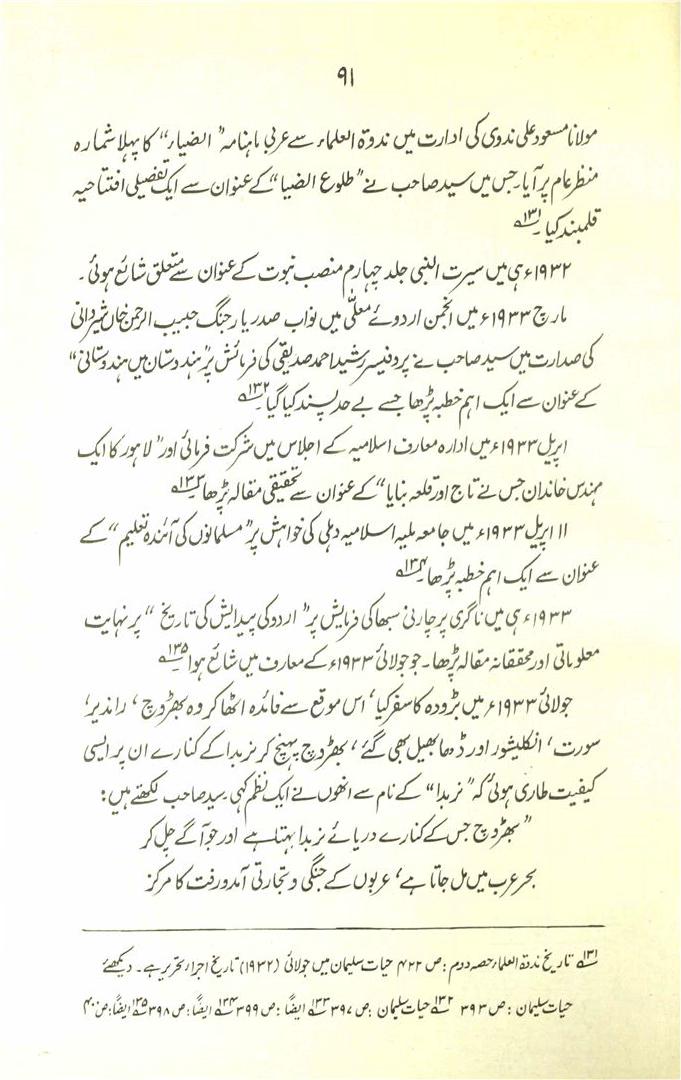 ۹۱
مولانا مسعود علی ندوی کی ادارت میں ندوۃ العلماء سے عربی ماہنامہ "الضیاء" کا پہلا شمارہ
منظر عام پر آیا۔ جس میں سید صاحب نے "طلوع الضیا" کے عنوان سے ایک تفصیلی افتتاحیہ
قلمبند کیا۔ ۱۳۱؎
۱۹۳۲ء ہی میں سیرت النبی جلد چہارم منصب نبوت کے عنوان سے متعلق شائع ہوئی۔
مارچ ۱۹۳۳ء میں انجمن اردوئے معلّٰی میں نواب صدر یار جنگ حبیب الرحمن خاں شیردانی
کی صدارت میں سید صاحب نے پروفیسر رشید احمد صدیقی کی فرمائش پر "ہندوستان میں ہندوستانی"
کے عنوان سے ایک اہم خطبہ پڑھا جسے بے حد پسند کیا گیا۔ ۱۳۲؎
اپریل ۱۹۳۳ء میں ادارہ معارف اسلامیہ کے اجلاس میں شرکت فرمائی اور "لاہور کا ایک
مہندس خاندان جس نے تاج اور قلعہ بنایا" کے عنوان سے تحقیقی مقالہ پڑھا۔ ۱۳۳؎
۱۱ اپریل ۱۹۳۳ء میں جامعہ ملیہ اسلامیہ دہلی کی خواہش پر "مسلمانوں کی آئندہ تعلیم" کے
عنوان سے ایک اہم خطبہ پڑھا۔ ۱۳۴؎
۱۹۳۳ء ہی میں ناگری پرچارنی سبھا کی فرمایش پر "اردو کی پیدایش کی تاریخ" پر نہایت
معلوماتی اور محققانہ مقالہ پڑھا۔ جو جولائی ۱۹۳۳ء کے معارف میں شائع ہوا۔ ۱۳۵؎
جولائی ۱۹۳۳ء میں بڑودہ کا سفر کیا، اس موقع سے فائدہ اٹھا کر وہ بھڑوچ، راندیر،
سورت، انکلیشور اور ڈھابھیل بھی گئے، بھڑوچ پہنچ کر نربدا کے کنارے ان پر ایسی
کیفیت طاری ہوئی کہ "نربدا" کے نام سے انھوں نے ایک نظم کہی۔ سید صاحب لکھتے ہیں:
"بھڑوچ جس کے کنارے دریائے نربدا بہتا ہے اور جو آگے چل کر
بحر عرب میں مل جاتا ہے، عربوں کے جنگی و تجارتی آمدورفت کا مرکز
۱۳۱؎ تاریخ ندوۃ العلماء حصہ دوم: ص ۴۲۲ حیات سلیمان میں جولائی (۱۹۳۲) تاریخ اجرا تحریر ہے۔ دیکھئے
حیات سلیمان: ص ۳۹۳ ۱۳۲؎ حیات سلیمان: ص ۳۹۷ ۱۳۳؎ ایضاً: ص ۳۹۹ ۱۳۴؎ ایضاً: ص ۳۹۸ ۱۳۵؎ ایضاً: ص ۴۰۰